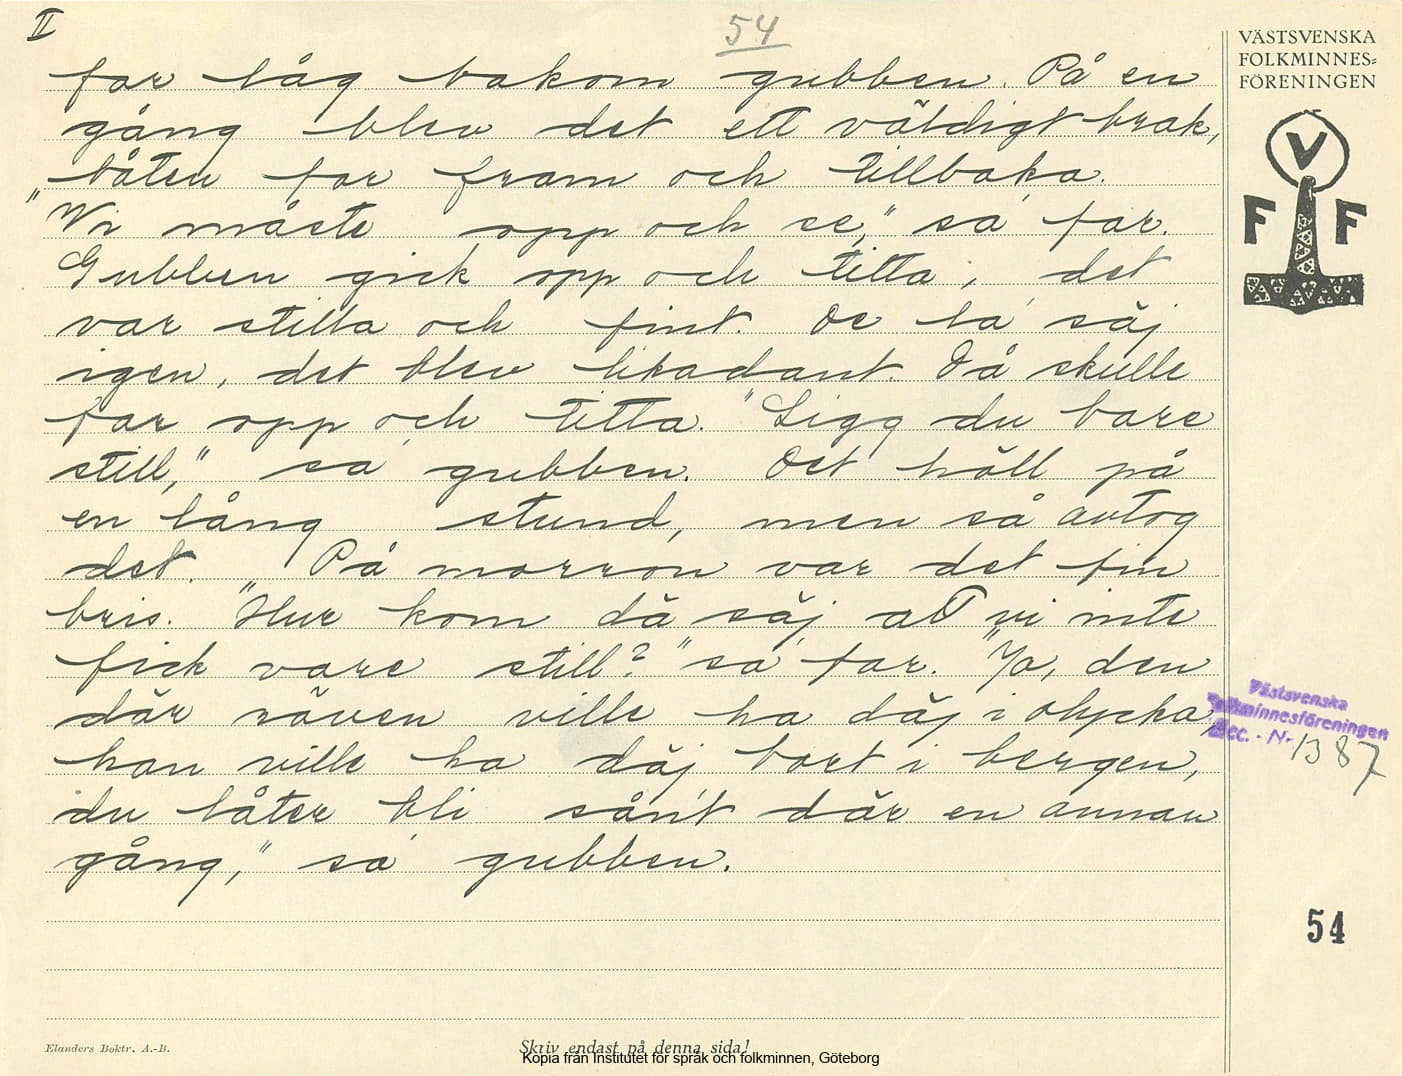 II
54
VÄSTSVENSKA
FOLKMINNES=
FÖRENINGEN
V
F F
far låg bakom gubben. På en
gång blev det ett väldigt brak,
båten for fram och tillbaka.
"Vi måste opp och se," sa far.
Gubben gick opp och titta, det
var stilla och fint. De la säj
igen, det blev likadant. Då skulle
far opp och titta. "Ligg du bare
still," sa gubben. Det höll på
en lång stund, men så avtog
det. På morron var det fin
bris. "Hur kom dä säj att vi inte
fick vare still?" sa far. "Ja, den
där räven ville ha däj i olycka,
han ville ha däj bort i bergen,
du låter bli sånt där en annan
gång," sa gubben.
Västsvenska
Folkminnesföreningen
Acc. - Nr 1387
54
Elanders Boktr. A.-B.
Skriv endast på denna sida!
Kopia från Institutet för språk och folkminnen, Göteborg